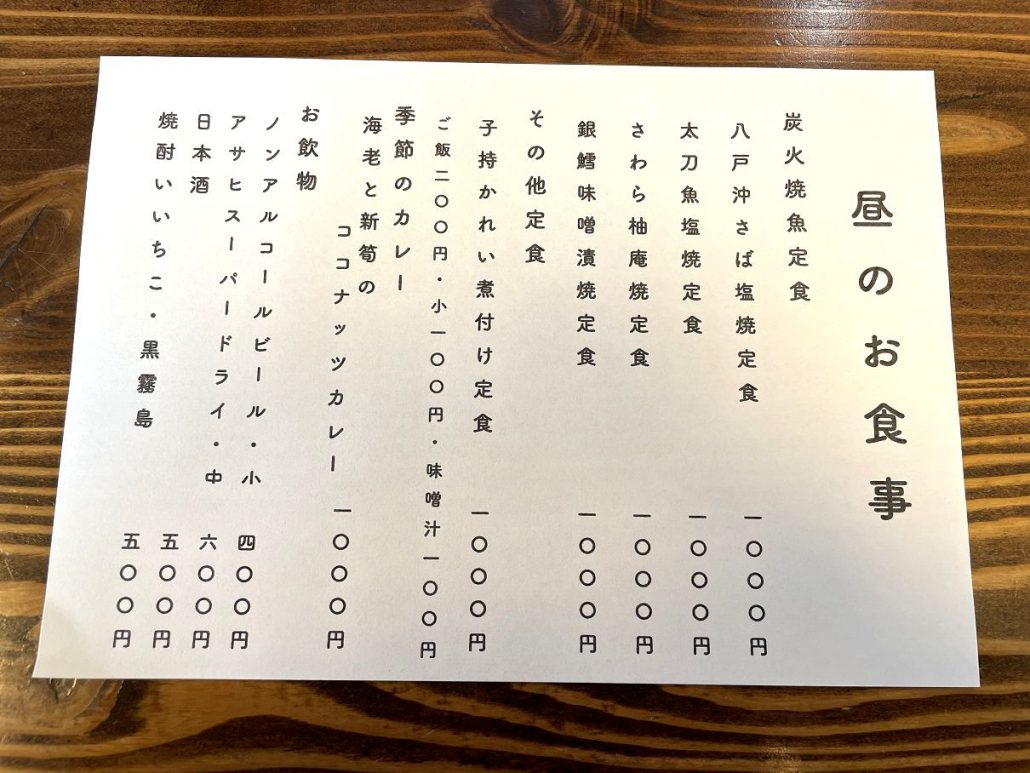 昼のお食事
炭火焼魚定食
八戸沖さば塩焼定食 一〇〇〇円
太刀魚塩焼定食 一〇〇〇円
さわら柚庵焼定食 一〇〇〇円
銀鱈味噌漬焼定食 一〇〇〇円
その他定食
子持かれい煮付け定食 一〇〇〇円
ご飯二〇〇円・小一〇〇円・味噌汁一〇〇円
季節のカレー
海老と新筍の
ココナッツカレー 一〇〇〇円
お飲物
ノンアルコールビール・小 四〇〇円
アサヒスーパードライ・中 六〇〇円
日本酒 五〇〇円
焼酎いいちこ・黒霧島 五〇〇円